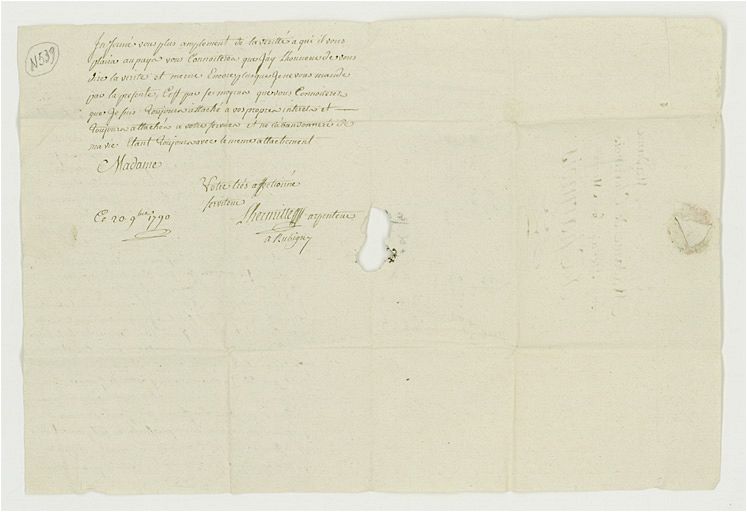 N539
Informé vous plus amplement de la verité a qui il vous
plaira au pays vous Connoitrera que J'ay L'honneur de vous
dire la verité et meme Encore plus que Je ne vous mande
par la presente, C'est par se moyen que vous Connoitrés
que Je suis toujours attaché a vos propres interets et
toujours attaché a votre service et ne l'abandonneré de
ma vie Etant toujours avec le meme attachement
Madame
Votre tres affectionné
serviteur
Ce 20 9bre 1790
Lhermitte arpenteur
a Aubigny